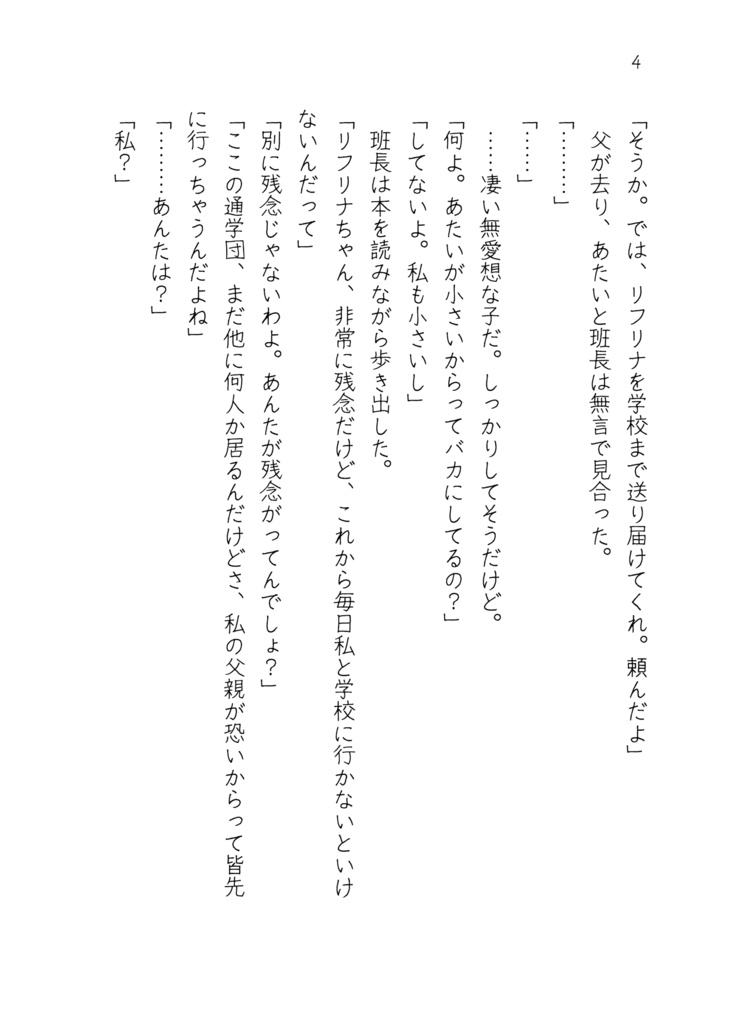 4
「そうか。では、リフリナを学校まで送り届けてくれ。頼んだよ」
　父が去り、あたいと班長は無言で見合った。
「………」
「……」
　……凄い無愛想な子だ。しっかりしてそうだけど。
「何よ。あたいが小さいからってバカにしてるの？」
「してないよ。私も小さいし」
　班長は本を読みながら歩き出した。
「リフリナちゃん、非常に残念だけど、これから毎日私と学校に行かないといけ
ないんだって」
「別に残念じゃないわよ。あんたが残念がってんでしょ？」
「ここの通学団、まだ他に何人か居るんだけどさ、私の父親が恐いからって皆先
に行っちゃうんだよね」
「………あんたは？」
「私？」